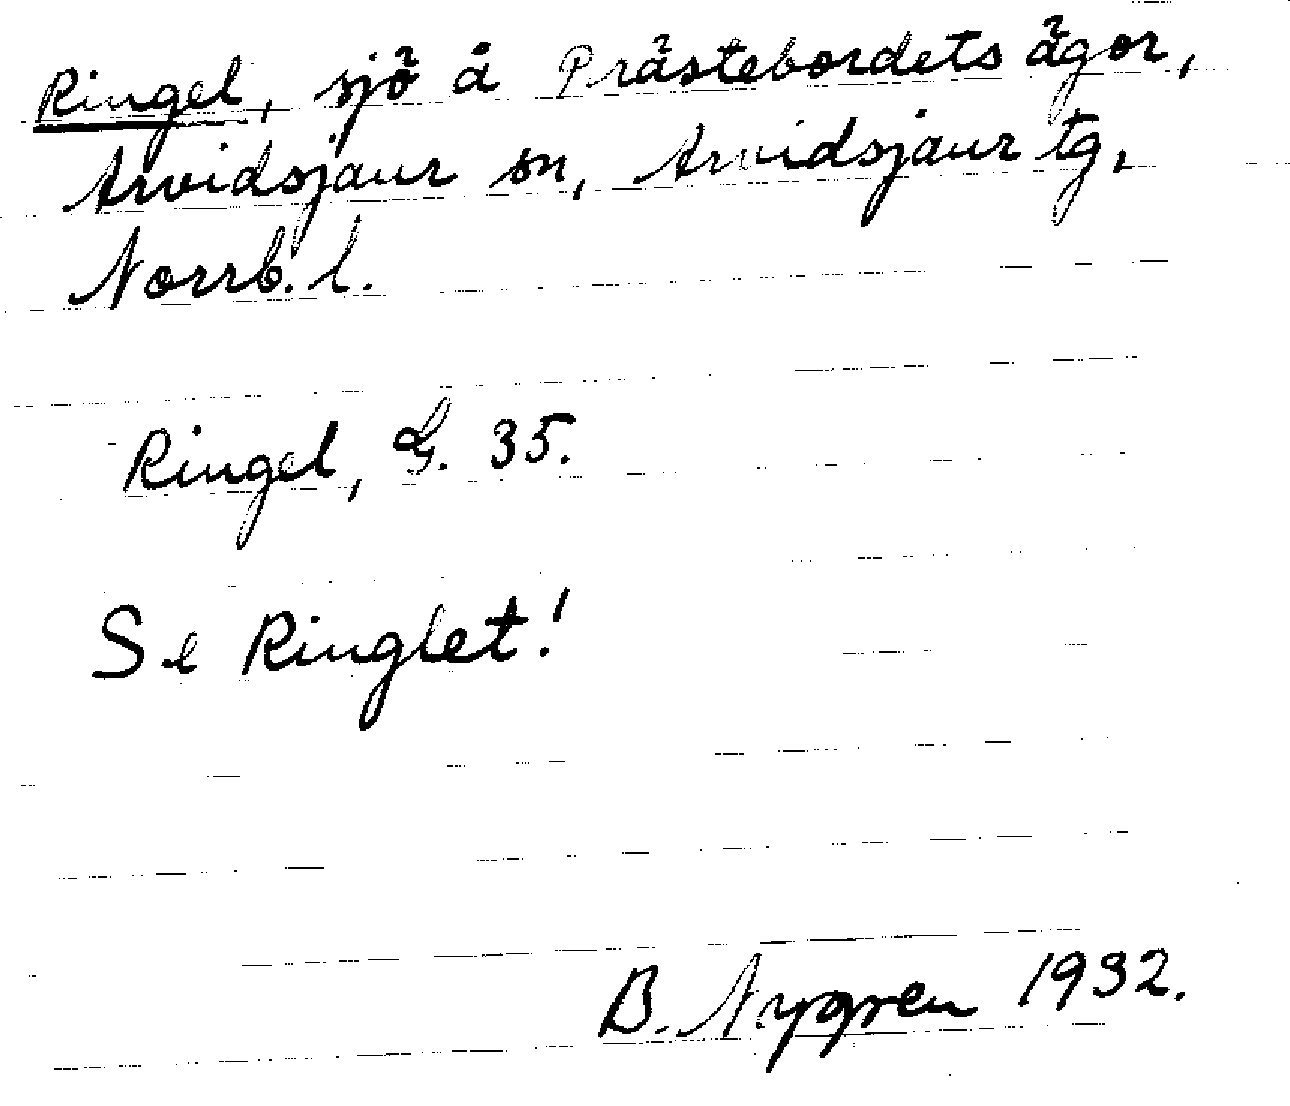 Ringel, sjö å Prästebordets ägor,
Arvidsjaur sn, Arvidsjaur tg,
Norrb. l.
Ringel, G. 35.
Se Ringlet!
B. Nygren 1932.